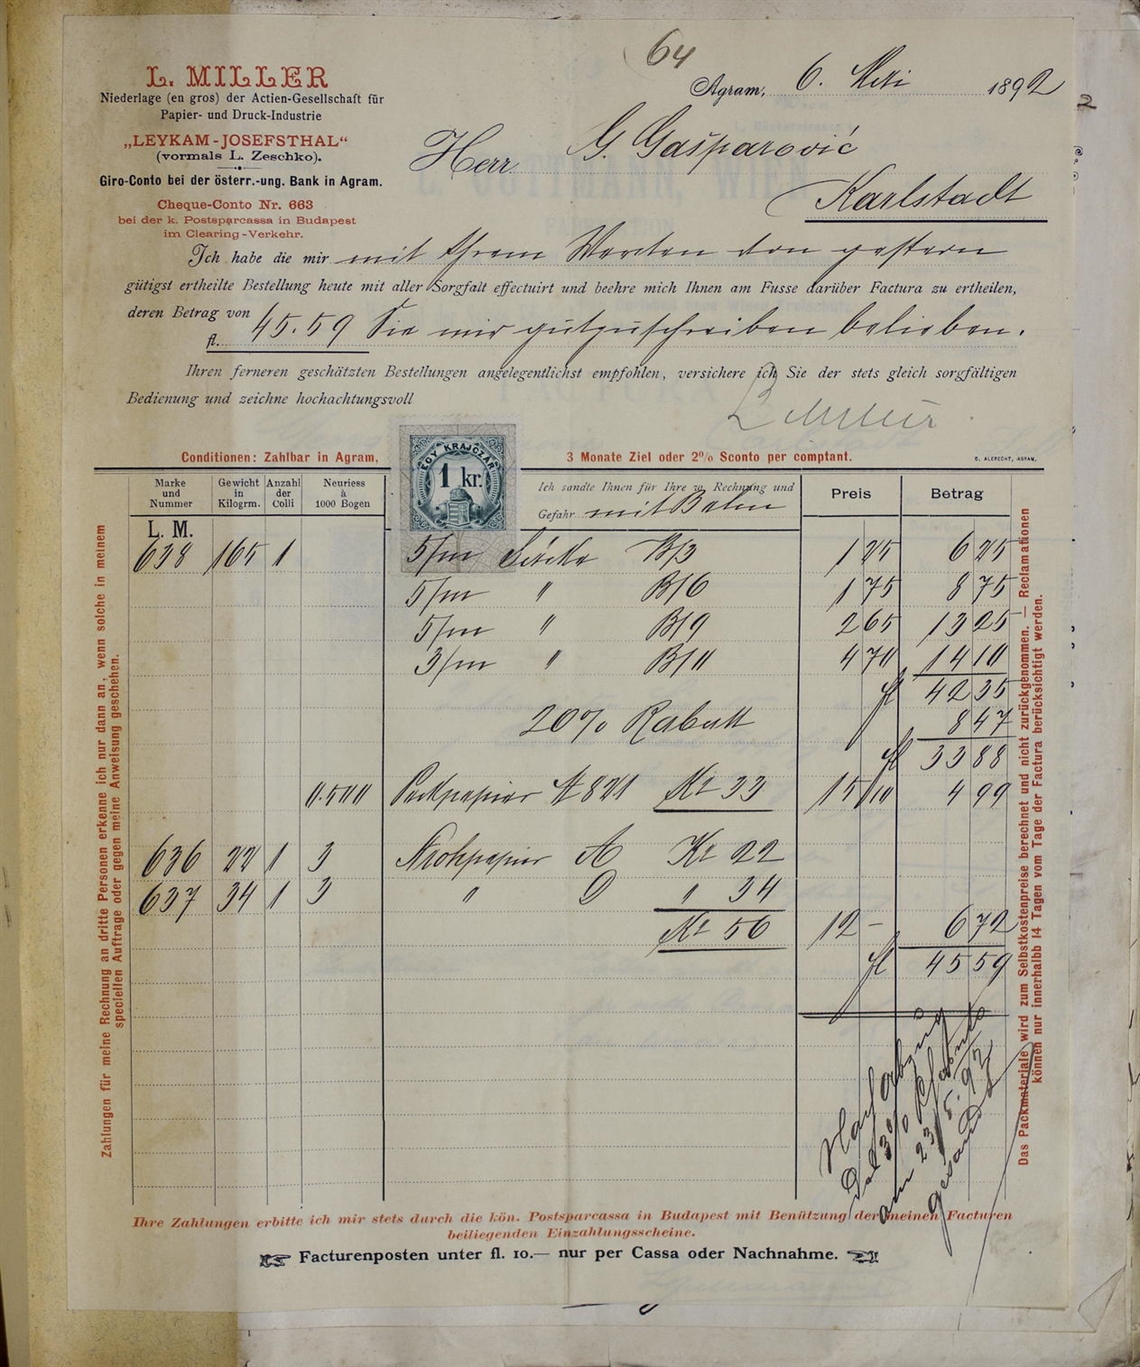 64
L. MILLER
Niederlage (en gros) der Actien-Gesellschaft für
Papier- und Druck-Industrie
„LEYKAM-JOSEFSTHAL“
(vormals L. Zeschko).
Giro-Conto bei der österr.-ung. Bank in Agram.
Cheque-Conto Nr. 663
bei der k. Postsparcassa in Budapest
im Clearing-Verkehr.
Agram, 6. Mai 1892
2
Herr G. Gašparović
Karlstadt
Ich habe die mir mit Ihrem Werthen von gestern
gütigst ertheilte Bestellung heute mit aller Sorgfalt effectuirt und beehre mich Ihnen am Fusse darüber Factura zu ertheilen,
deren Betrag von
fl. 45.59 Sie mir gutzuschreiben belieben.
Ihren ferneren geschätzten Bestellungen angelegentlichst empfohlen, versichere ich Sie der stets gleich sorgfältigen
Bedienung und zeichne hochachtungsvoll
L Miller
EGY KRAJCZÁR
1 kr.
Conditionen: Zahlbar in Agram, 3 Monate Ziel oder 2% Sconto per comptant.
C. ALBRECHT, AGRAM.
Marke und Nummer Gewicht in Kilogrm. Anzahl der Colli Neuriess à 1000 Bogen Ich sandte Ihnen für Ihre w. Rechnung und Gefahr mit Bahn Preis Betrag
L. M.
638 165 1 5/m Säcke B/3 1 25 6 25
5/m " B/6 1 75 8 75
5/m " B/9 2 65 13 25
3/m " B/11 4 70 14 10
fl 42 35
20% Rabatt 8 47
fl 33 88
0.500 Packpapier 821 Ko 33 15/10 4 99
636 22 1 3 Strohpapier A Ko 22
637 34 1 3 " D " 34
Ko 56 12 – 6 72
fl 45 59
Nach Abzug
3% Sconto
am 23/5.92
gesandt
Zahlungen für meine Rechnung an dritte Personen erkenne ich nur dann an, wenn solche in meinem
speciellen Auftrage oder gegen meine Anweisung geschehen.
Das Packmateriale wird zum Selbstkostenpreise berechnet und nicht zurückgenommen. — Reclamationen
können nur innerhalb 14 Tagen vom Tage der Factura berücksichtigt werden.
Ihre Zahlungen erbitte ich mir stets durch die kön. Postsparcassa in Budapest mit Benützung der meinen Facturen
beiliegenden Einzahlungsscheine.
Facturenposten unter fl. 10.— nur per Cassa oder Nachnahme.